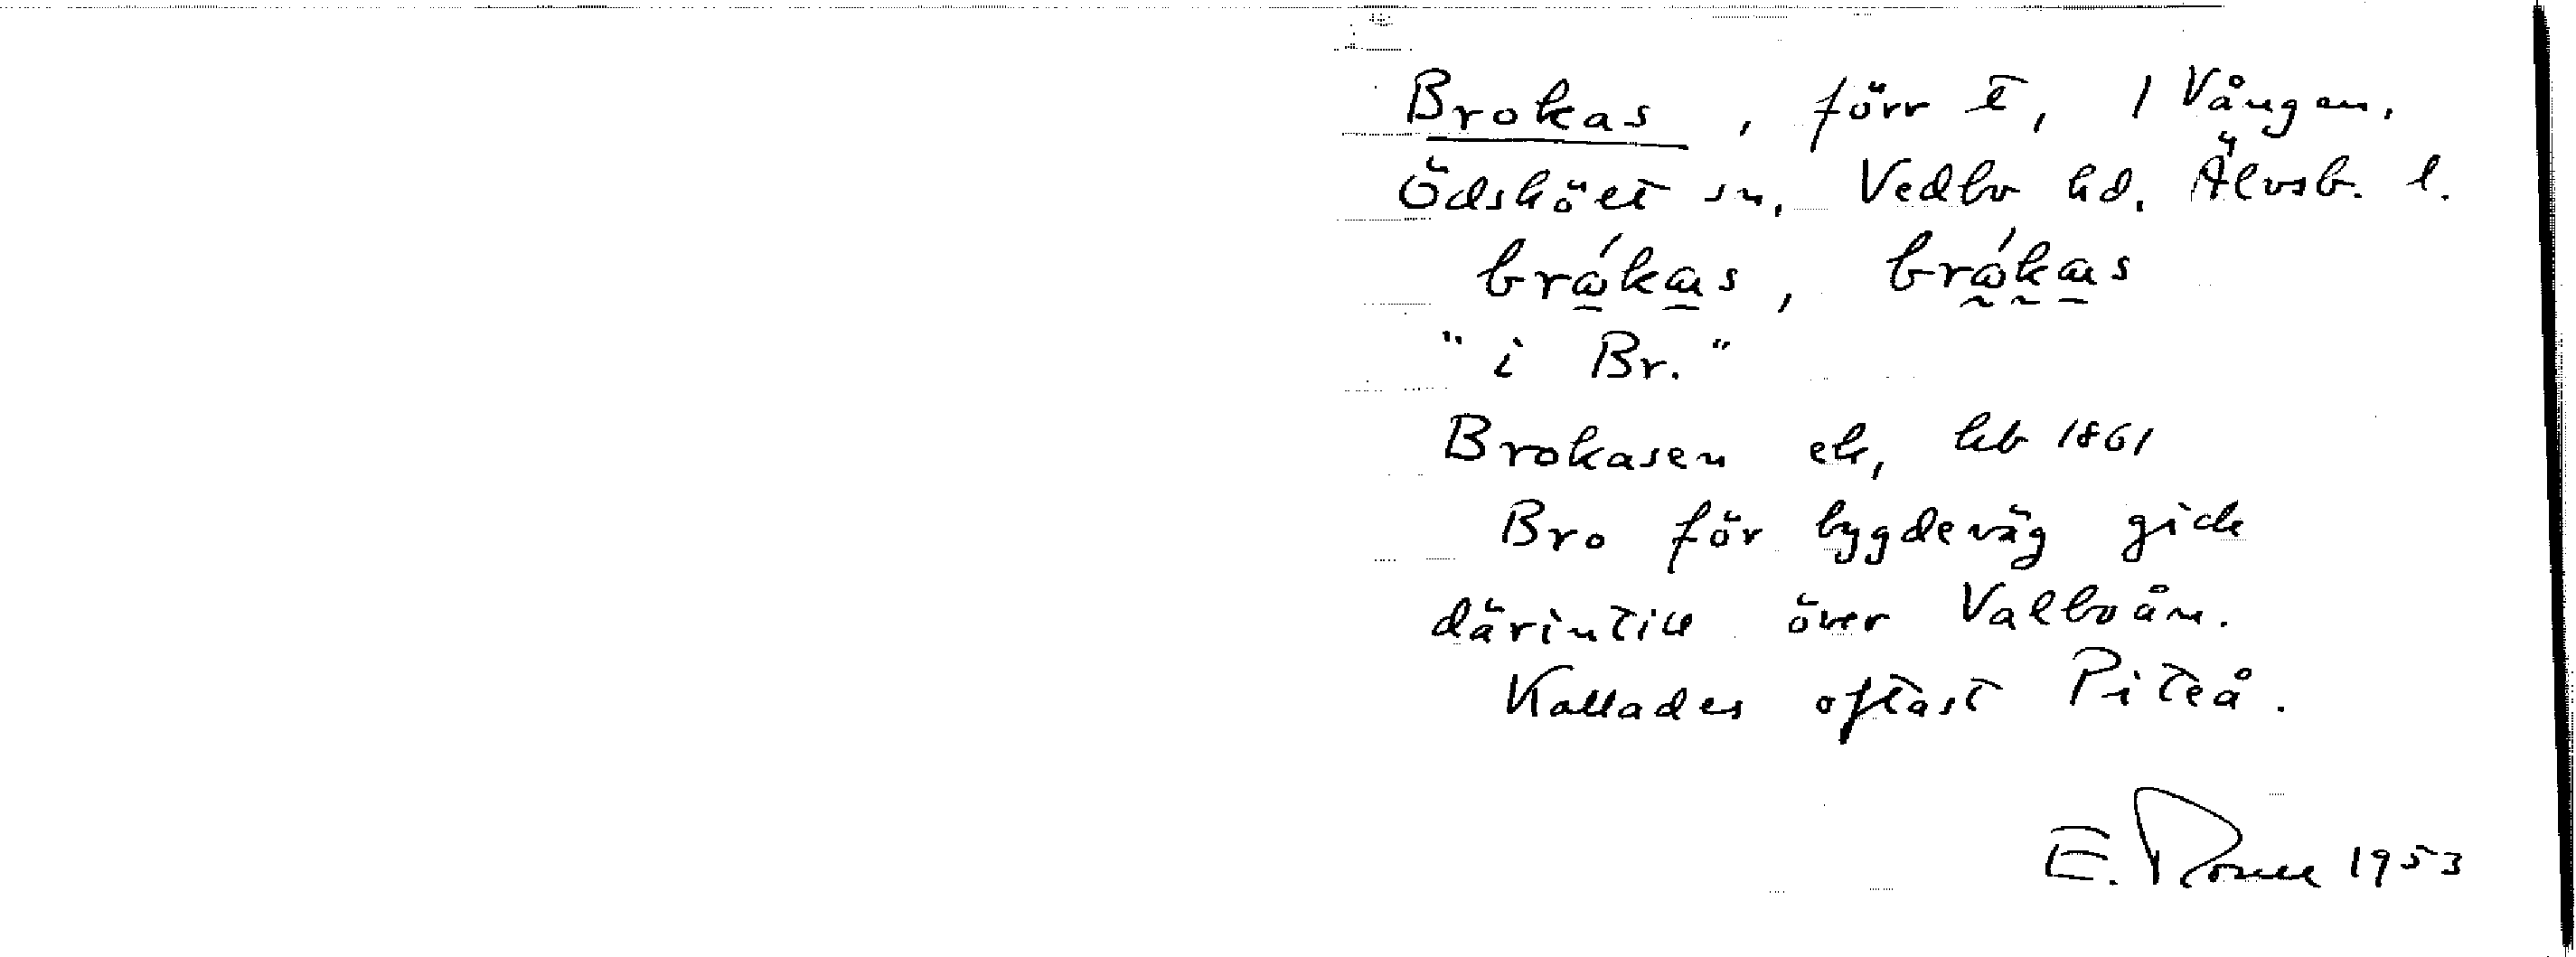 Brokas, förr t, 1 Vången.
ÖdsköLt sn, Vedbo hd. Älvsb. l.
brώkas, brώkas
"i Br."
Brokasen lht, hb 1861
Bro för bygdeväg gick
därintill över Valboån.
Kallades oftast Piteå.
E. 1953